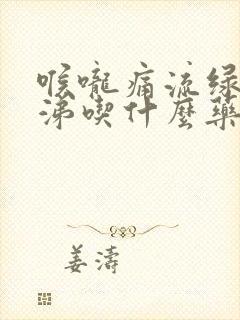 喉嚨痛流绿
涕喫什麼藥
姜濤